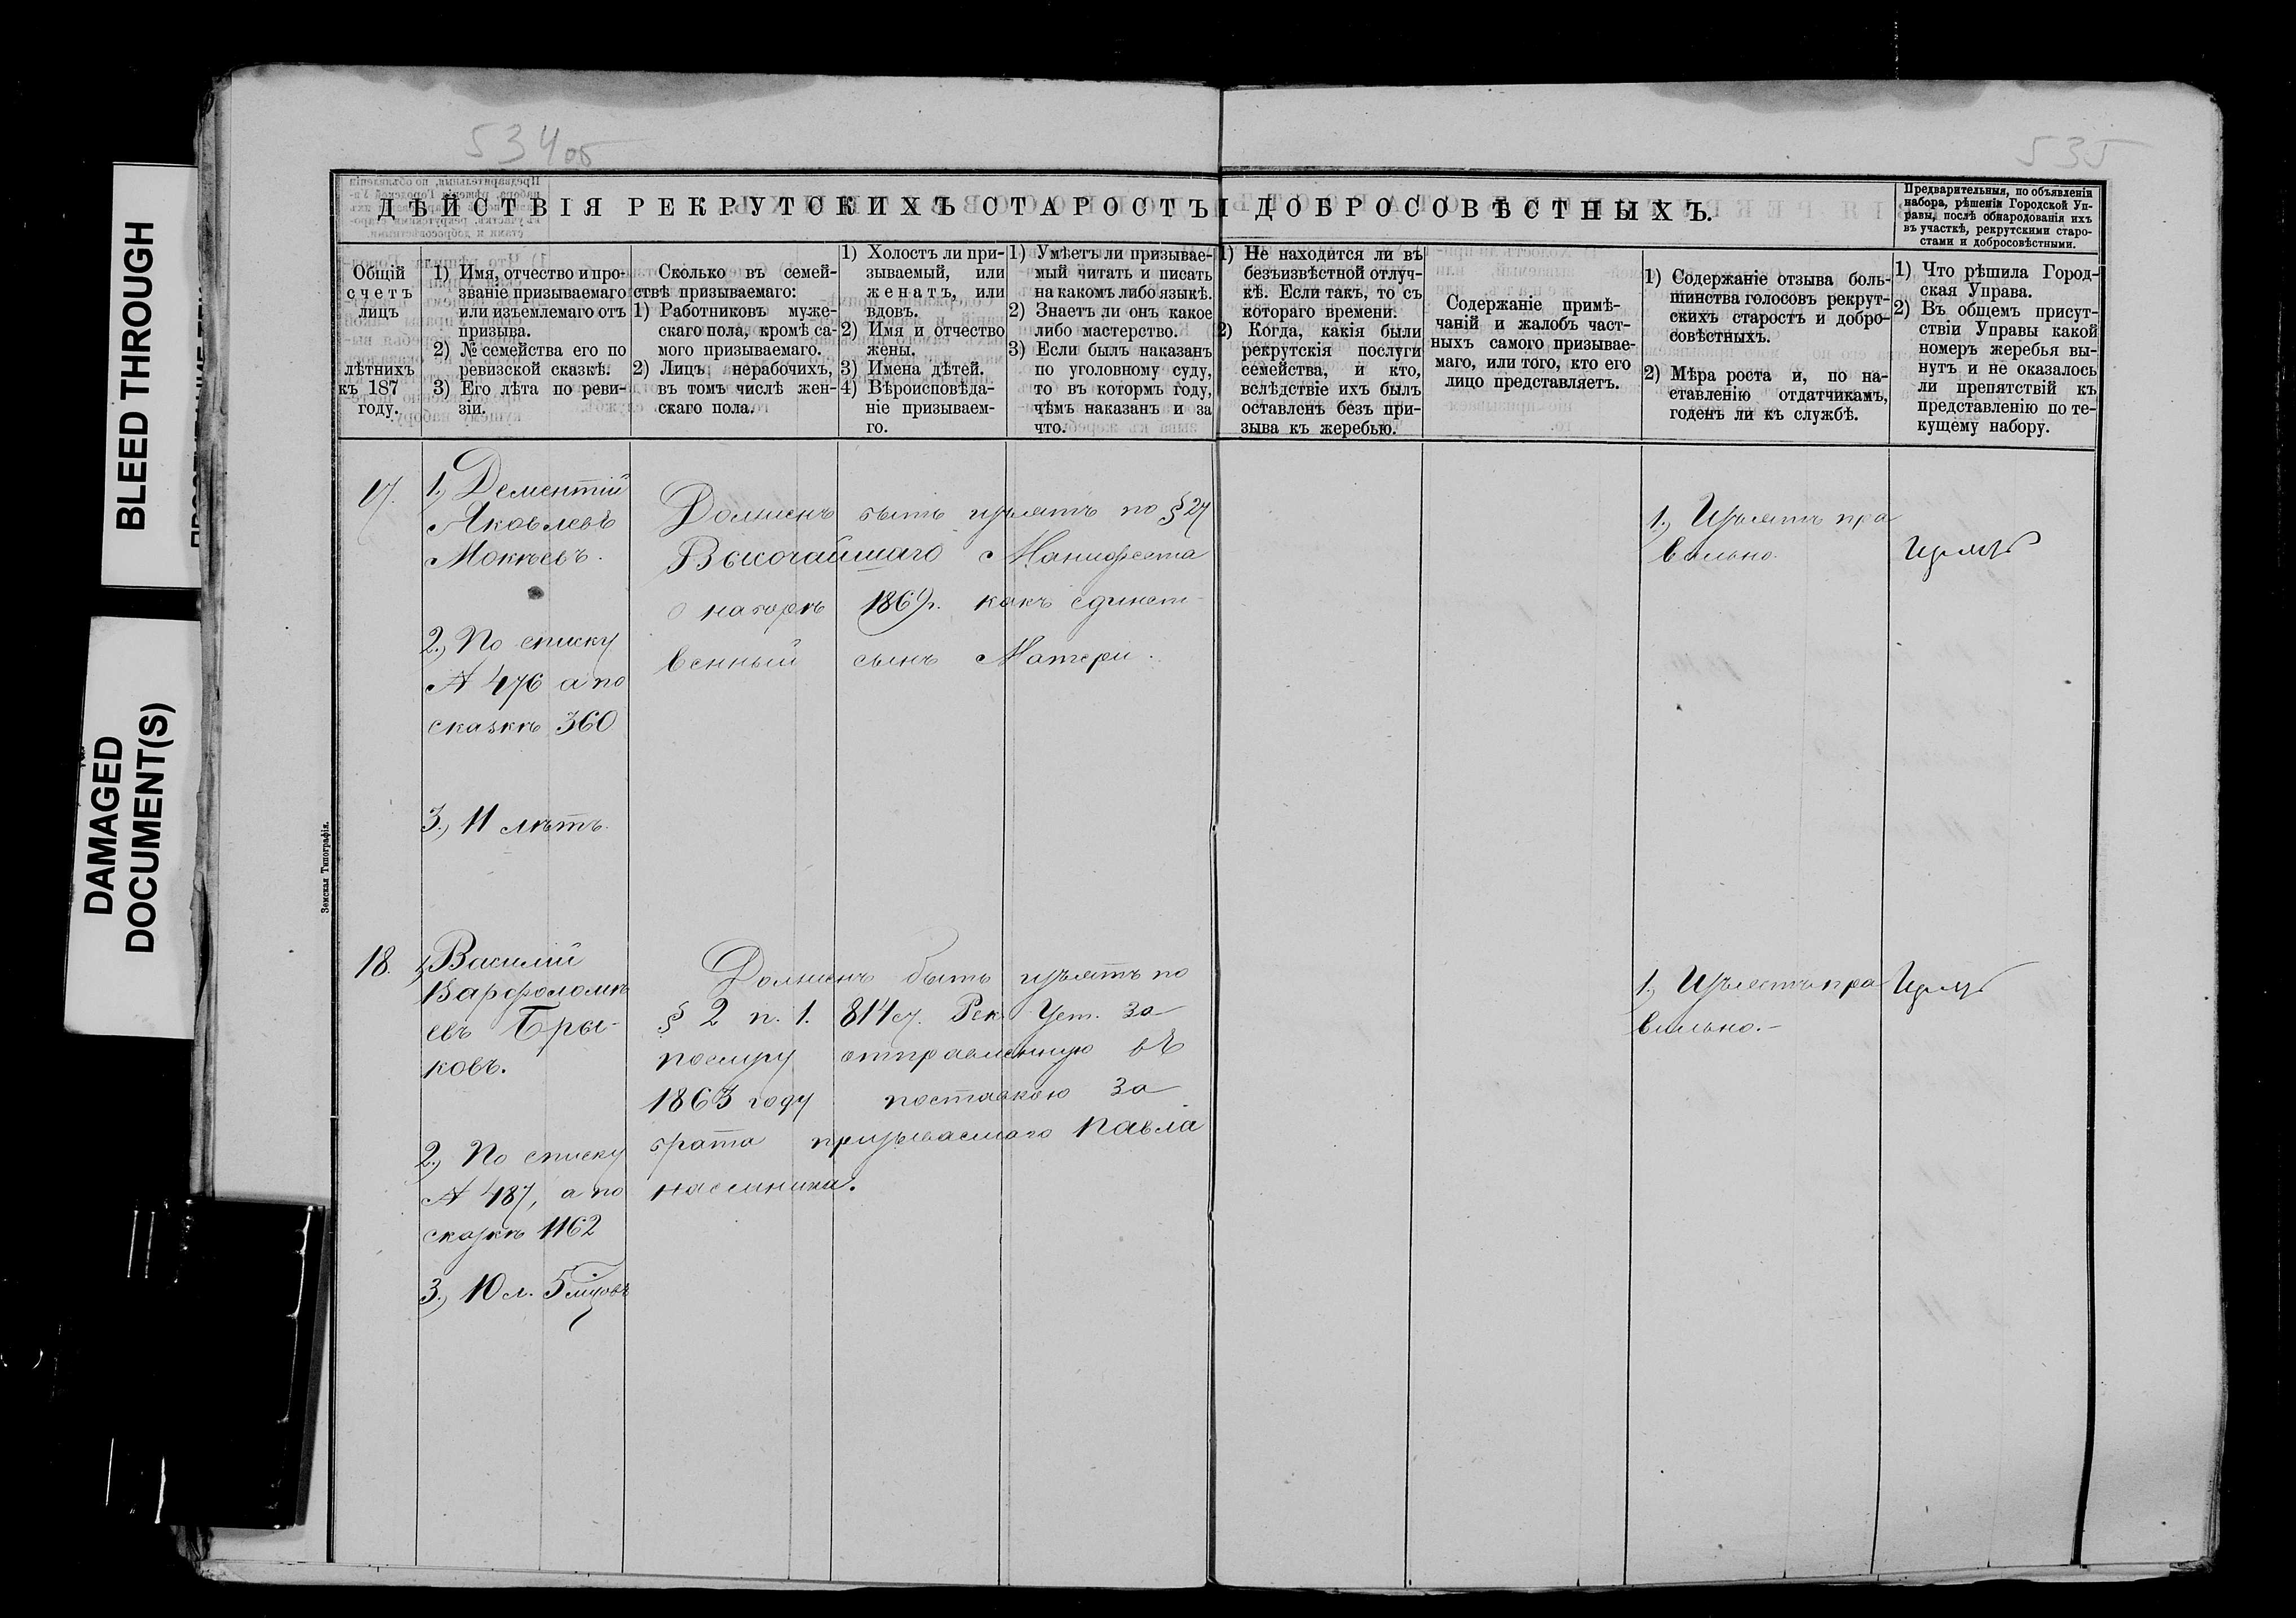 BLEED THROUGH
DAMAGED
DOCUMENT(S)
534об
535
ДѢЙСТВІЯ РЕКРУТСКИХЪ СТАРОСТЪ И ДОБРОСОВѢСТНЫХЪ.
Предварительныя, по объявленіи
набора, рѣшенія Городской Уп-
равы, послѣ обнародованія ихъ
въ участкѣ, рекрутскими старо-
стами и добросовѣстными.
Общій
счетъ
лицъ
лѣтнихъ
къ 187
году.
1) Имя, отчество и про-
званіе призываемаго
или изъемлемаго отъ
призыва.
2) № семейства его по
ревизской сказкѣ.
3) Его лѣта по реви-
зіи.
Сколько въ семей-
ствѣ призываемаго:
1) Работниковъ муже-
скаго пола, кромѣ са-
мого призываемаго.
2) Лицъ нерабочихъ,
въ томъ числѣ жен-
скаго пола.
1) Холостъ ли при-
зываемый, или
женатъ, или
вдовъ.
2) Имя и отчество
жены.
3) Имена дѣтей.
4) Вѣроисповѣда-
ніе призываем-
го.
1) Умѣетъ ли призывае-
мый читать и писать
на какомъ либо языкѣ.
2) Знаетъ ли онъ какое
либо мастерство.
3) Если былъ наказанъ
по уголовному суду,
то въ которм году,
чѣмъ наказанъ и за
что.
1) Не находится ли въ
безъизвѣстной отлуч-
кѣ. Если такъ, то съ
котораго времени.
2) Когда, какія были
рекрутскія послуги
семейства, и кто,
вслѣдствіе ихъ былъ
оставленъ безъ при-
зыва къ жеребью.
Содержаніе примѣ-
чаній и жалобъ част-
ныхъ самого призывае-
маго, или того, кто его
лицо представляетъ.
1) Содержаніе отзыва боль-
шинства голосовъ рекрут-
скихъ старостъ и добро-
совѣстныхъ.
2) Мѣра роста и, по на-
ставленію отдатчикамъ,
годенъ ли къ службѣ.
1) Что рѣшила Город-
ская Управа.
2) Въ общемъ присут-
ствіи Управы какой
номеръ жеребья вы-
нутъ и не оказалось
ли препятствій къ
представленію по те-
кущему набору.
17.
1.) Дементій
Яковлевъ
Мокѣевъ.
2.) По списку
№ 476 а по
сказкѣ 360
3.) 11 лѣтъ.
Долженъ быть изъятъ по § 27
Высочайшаго Манифеста
о наборѣ 1869г. какъ единст-
венный сынъ Матери.
1.) Изъятъ пра
вильно.
18.
1) Василій
Варфоломѣ
евъ Бры-
ковъ.
2.) По списку
№ 487, а по
сказкѣ 1162
3.) 10 л. 5 мѣсяцовъ
Долженъ быть изъятъ по
§ 2 п. 1. 814 ст. Рек. Уст. за
послугу отправленную въ
1863 году поставкою за
брата призываемаго Павла
наемника.
1.) Изъятъ пра
вильно.-
Земская Типографія.